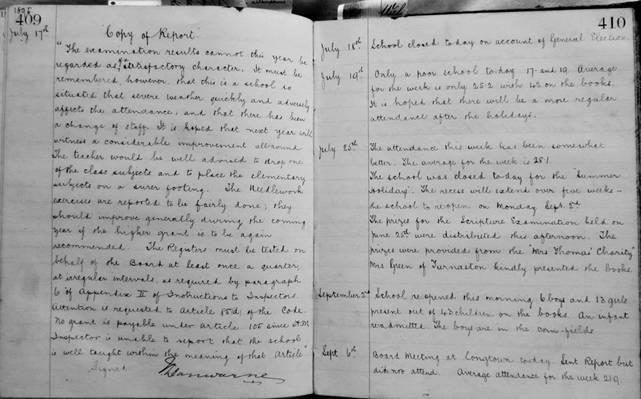 1895
409
July 17th
"Copy of Report"
"The examination results cannot this year be
regarded as of satisfactory character. It must be
remembered, however that this is a school so
situated that severe weather quickly and adversely
affects the attendance, and that there has been
a change of staff. It is hoped that next year will
witness a considerable improvement all round
The teacher would be well advised to drop one
of the class subjects and to place the elementary
subjects on a surer footing. The Needlework
exercises are reported to be fairly done; they
should improve generally during the coming
year if the higher grant is to be again
recommended. The Registers must be tested on
behalf of the Board at least once a quarter,
at irregular intervals, as required by paragraph
6 of Appendix II of Instructions to Inspectors
Attention is requested to Article 85 of the Code.
No grant is payable under Article 105 since H.M.
Inspector is unable to report that the school
is well taught within the meaning of that Article"
Signed
410
July 18th School closed today on account of General Election.
July 19th Only a poor school today 17 and 19. Average
for the week is only 25.2 with 43 on the books.
It is hoped that there will be a more regular
attendance after the holidays.
July 25th The attendance this week has been somewhat
better. The average for the week is 28.1
The school was closed today for the "Summer
Holiday". The recess will extend over five weeks -
the school to reopen on Monday Sept. 2d
The prizes for the Scripture Examination held on
June 25th were distributed this afternoon. The
prizes were provided from the "Mrs Thomas' Charity"
Mrs Green of Turnaston kindly presented the books.
September 2d School reopened this morning 6 boys and 13 girls
present out of 43 children on the books. An infant
readmitted. The boys are in the corn-fields
Sept 6th Board Meeting at Longtown today. Sent Report but
did not attend. Average attendance for the week 21.9